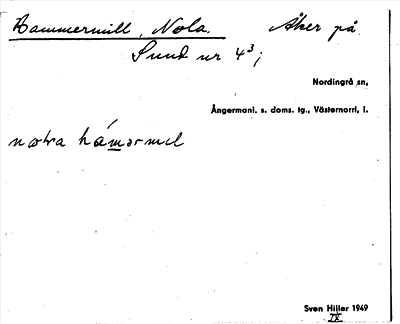 Hammermill, Nola. Åker på
Sund nr 4³;
Nordingrå sn,
Ångermanl. s. doms. tg., Västernorrl. l.
hámərmɪl
Sven Hiller 1949
IX